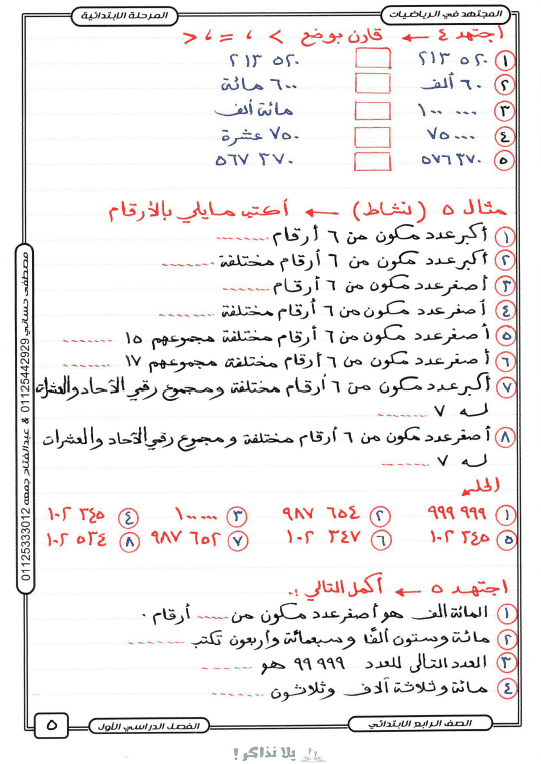 المجتهد في الرياضيات
المرحلة الابتدائية
اجتهد ٤ ← قارن بوضع > ، = ، <
١ ٥٢٠ ٢١٣ ٥٢٠ ٢١٣
٢ ٦٠ ألف ٦٠٠ مائة
٣ ١٠٠ ٠٠٠ مائة ألف
٤ ٧٥ ٠٠٠ ٧٥٠ عشرة
٥ ٥٧٦ ٣٧٠ ٥٦٧ ٣٧٠
مثال ٥ (نشاط) ← أكتب مايلي بالأرقام
١ أكبر عدد مكون من ٦ أرقام ........
٢ أكبر عدد مكون من ٦ أرقام مختلفة ........
٣ أصغر عدد مكون من ٦ أرقام ........
٤ أصغر عدد مكون من ٦ أرقام مختلفة ........
٥ أصغر عدد مكون من ٦ أرقام مختلفة مجموعهم ١٥ ........
٦ أصغر عدد مكون من ٦ أرقام مختلفة مجموعهم ١٧ ........
٧ أكبر عدد مكون من ٦ أرقام مختلفة ومجموع رقمي الآحاد والعشرات
له ٧ ........
٨ أصغر عدد مكون من ٦ أرقام مختلفة ومجموع رقمي الآحاد والعشرات
له ٧ ........
الحل
١ ٩٩٩ ٩٩٩ ٢ ٩٨٧ ٦٥٤ ٣ ١٠٠٠٠٠ ٤ ١٠٢ ٣٤٥
٥ ١٠٢ ٣٤٥ ٦ ١٠٢ ٣٤٧ ٧ ٩٨٧ ٦٥٢ ٨ ١٠٢ ٥٣٤
اجتهد ٥ ← أكمل التالي :.
١ المائة الف هو أصغر عدد مكون من ...... أرقام .
٢ مائة وستون ألفًا وسبعمائة وأربعون تكتب ........
٣ العدد التالى للعدد ٩٩ ٩٩٩ هو ........
٤ مائة وثلاثة آلاف وثلاثون ........
مصطفى حسانى 01125442929 & عبدالفتاح جمعه 01125333012
الصف الرابع الابتدائي
الفصل الدراسي الأول
٥
يلا نذاكر !